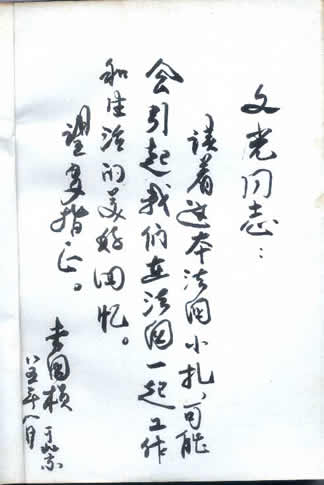 文光同志：
读着这本法国小扎,可能
会引起我们在法国一起工作
和生活的美好回忆。
望多指正。
李国桢于北京
八五年八月